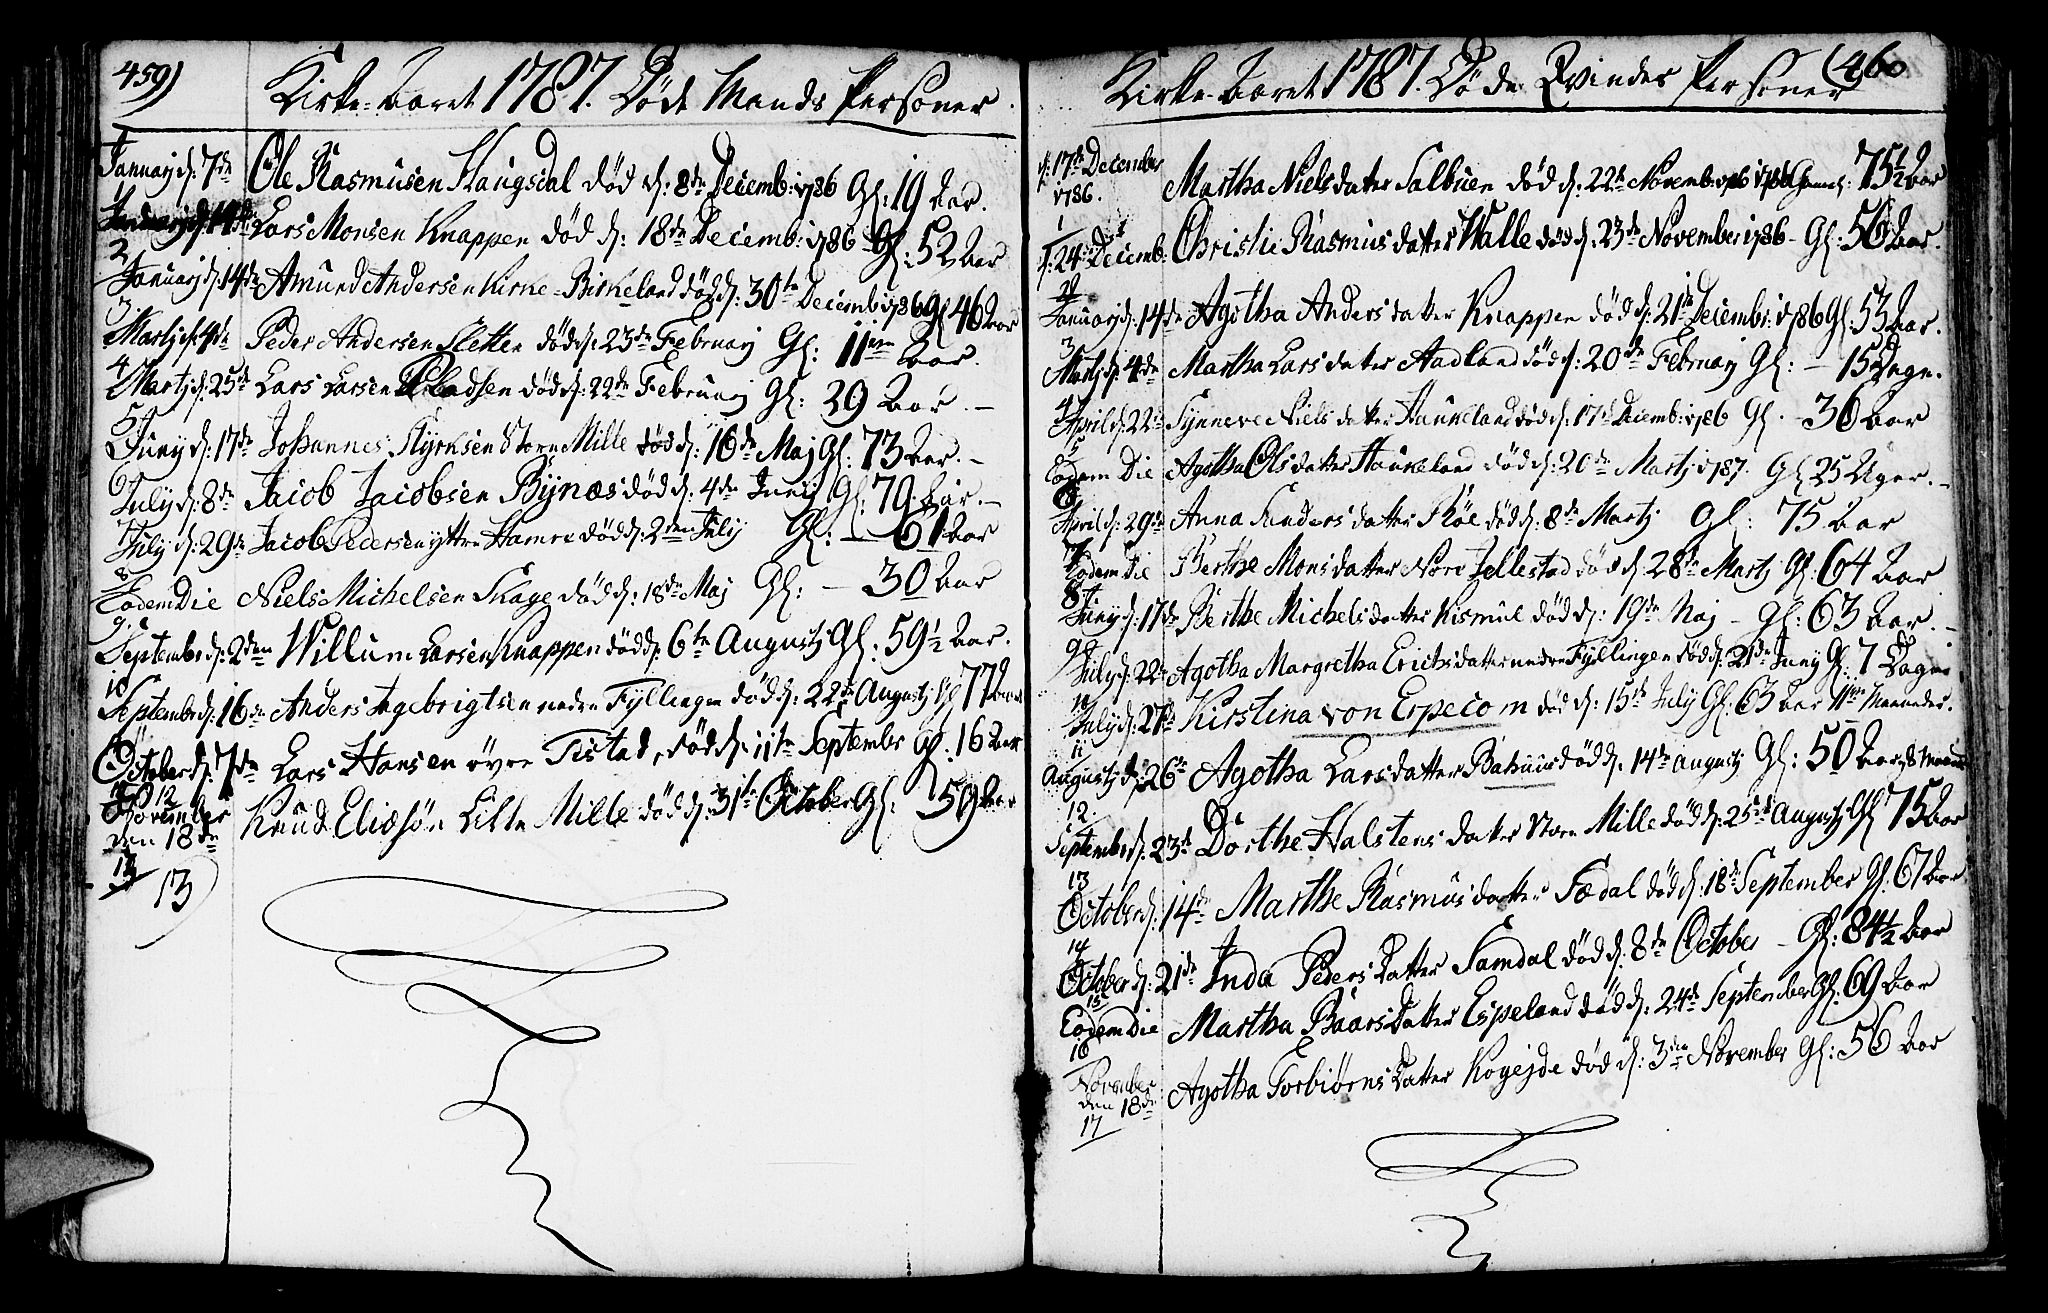 459)
Kirke-Aaret 1787. Døde Mands Personer.
1
Januarj d: 7de Ole Rasmusen Haugsdal død d: 8de Decemb: 1786 Gl: 19 Aar.
Januarj d: 14de Lars Monsen Knappen død d: 18de Decemb: 1786 Gl: 52 Aar
2
Januarj d: 14de Amund Andersen Kirke-Birkeland død d: 30te Decemb: 1786 Gl 46 Aar
3
Martj d: 4de Peder Andersen Sletten død d: 23de Februarj Gl: 11 Aar.
4
Martj d: 25de Lars Larsen Pladsen død d: 22de Februarj Gl: 29 Aar. -
5
Junj d: 17de Johannes Styrksen Store Mille død d: 16de Maj Gl: 73 Aar. -
6
July d: 8de Jacob Jacobsen Bynæs død d: 4de Junj Gl: 79 Aar. -
7
July d: 29de Jacob Pedersen yttre Hamre død d: 2den July Gl: - 61 Aar
8
Eodem Die Niels Michelsen Skage død d: 18de Maj Gl: - 30 Aar
9
Septembr d: 2den Willum Larsen Knappen død d: 6te Augustj Gl: 59½ Aar.
10
Septembr d: 16de Anders Ingebrigtsen nedre Fyllingen død d: 22de Augustj Gl 77 Aar
11
October d: 7de Lars Hansen øvre Tistad, død d: 11te September Gl. 16 Aar
12
November
den 18de Knud Eliæsøn Lille Mille død d: 31te October Gl: 59 Aar
13
13)
(460
Kirke-Aaret 1787. Døde Qvindes Personer
d: 17de December
1786. Martha Nielsdatter Salbuen død d: 22de Novemb: 1786 75½ Aar
1
d: 24de Decemb: Christie Rasmusdatter Walle død d: 23de November 1786 - Gl: 56 Aar.
2
Januarj d: 14de Agotha Andersdatter Knappen død d: 21de Decembr: 1786 Gl: 53 Aar.
3
Martj d: 4de Martha Larsdatter Aadland død d: 20de Februarj Gl: - 15 Dage.
4
April d: 22de Synneve Nielsdatter Haukeland død d: 17de Decemb: 1786 Gl. - 36 Aar
5
Eodem Die Agotha Olsdatter Haukeland død d: 20de Martj 1787. Gl 25 Uger. -
6
April d: 29de Anna Sandersdatter Røe død d: 8de Martj Gl: 75 Aar
7
Eodem Die Berthe Monsdatter Nore Jellestad død d: 28de Martj Gl: 64 Aar
8
Junj d: 17de Berthe Michelsdatter Kismul død d: 19de Maj - Gl: 63 Aar. -
9
July d: 22de Agotha Margretha Erichsdatter nedre Fyllingen død d: 21de Junj Gl: 7 Dage
10
July d: 27de Kirstina von Erpecom død d: 15de July Gl: 63 Aar 11 Maaneder.
11
Augustj d: 26te Agotha Larsdatter død d. 14de Augustj Gl: 50 Aar, 8 Maaneder
12.
Septembr d. 23de Dorthe Halstensdatter Store Mille død d: 25de Augustj Gl 75 Aar
13
October d: 14de Marthe Rasmusdatter Sædal død d: 18de September Gl: 67 Aar
14
October d: 21de Inda Peders Datter Samdal død d: 8de October - Gl: 84½ Aar
15
Eodem Die Martha Baars Datter Espeland død d: 24de September Gl: 69 Aar
16
November
den 18de Agotha Torbiørns Datter død d: 3die November Gl: 56 Aar
17